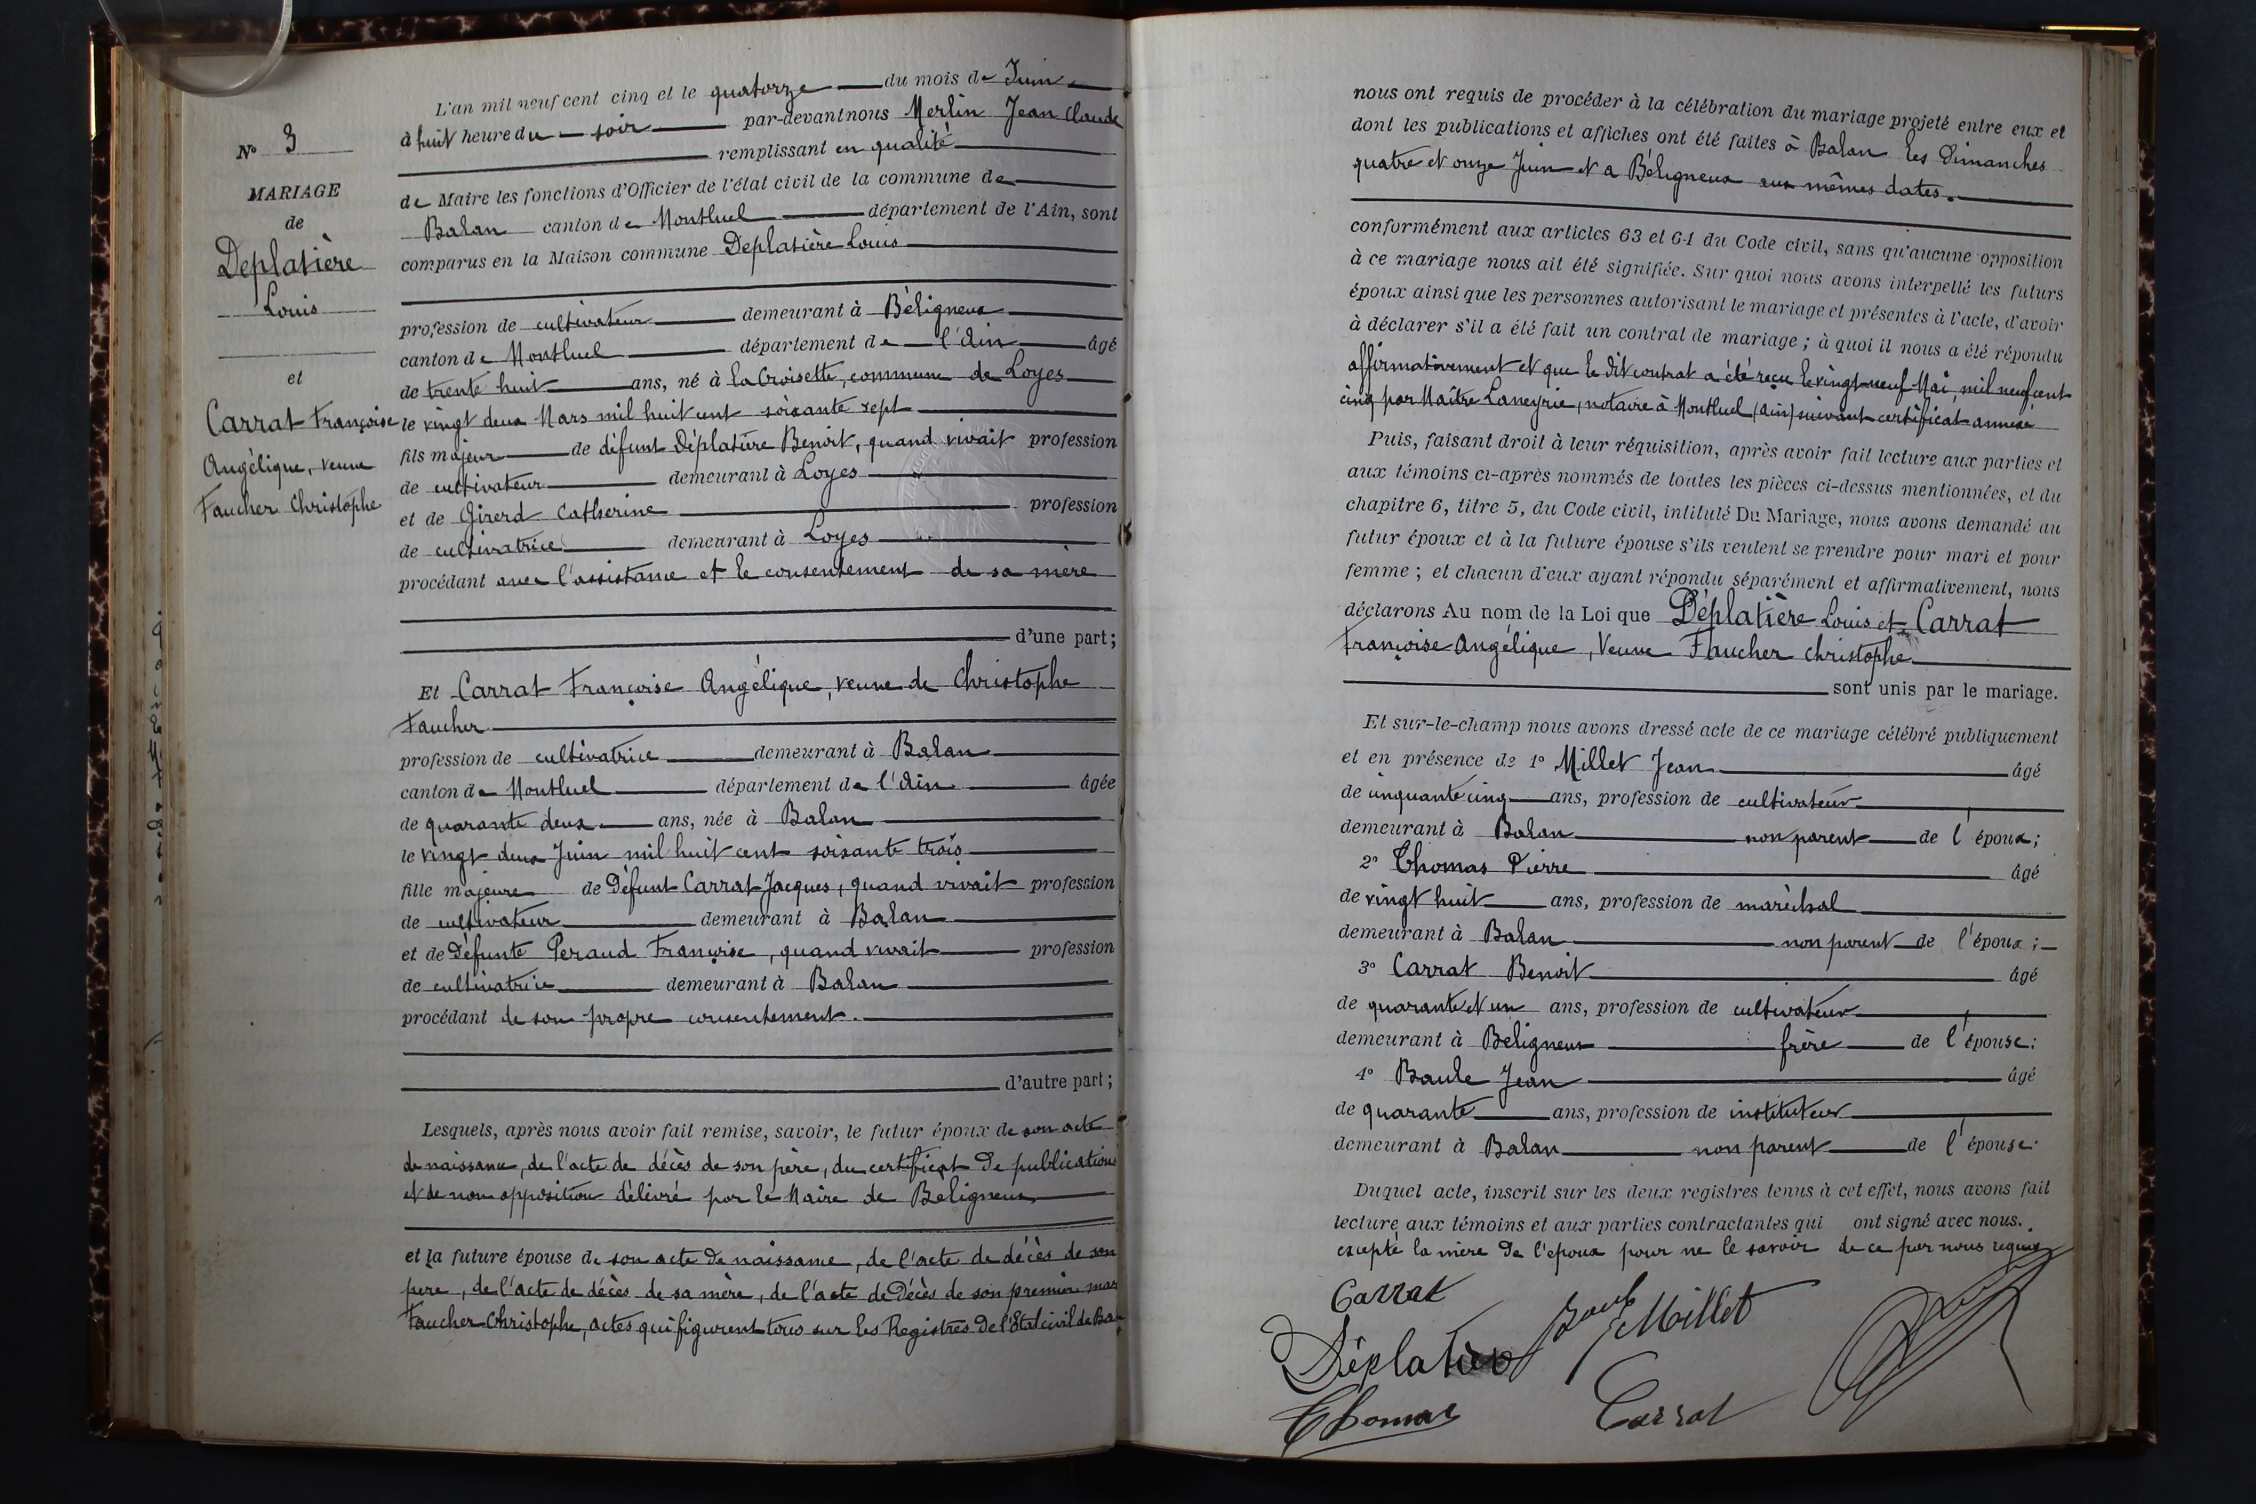 L'an mil neuf cent cinq et le quatorze du mois de Juin
à huit heure du soir par-devant nous Merlin Jean Claude
remplissant en qualité
de Maire les fonctions d'Officier de l'état civil de la commune de
Balan canton de Montluel département de l'Ain, sont
comparus en la Maison commune Deplatière Louis
profession de cultivateur demeurant à Béligneux
canton de Montluel département de l'Ain âgé
de trente huit ans, né à la Croisette, commune de Loyes
le vingt deux Mars mil huit cent soixante sept
fils majeur de défunt Déplatière Benoit, quand vivait profession
de cultivateur demeurant à Loyes
et de Girerd Catherine profession
de cultivatrice demeurant à Loyes
procédant avec l'assistance et le consentement de sa mère
d'une part;
Et Carrat Françoise Angélique, veuve de Christophe
Faucher
profession de cultivatrice demeurant à Balan
canton de Montluel département de l'Ain âgée
de quarante deux ans, née à Balan
le vingt deux Juin mil huit cent soixante trois
fille majeure de Défunt Carrat Jacques, quand vivait profession
de cultivateur demeurant à Balan
et de Défunte Peraud Françoise, quand vivait profession
de cultivatrice demeurant à Balan
procédant de son propre consentement.
d'autre part;
Lesquels, après nous avoir fait remise, savoir, le futur époux de son acte
de naissance, de l'acte de décès de son père, du certificat de publications
et de non opposition délivré par le Maire de Béligneux
et la future épouse de son acte de naissance, de l'acte de décès de son
père, de l'acte de décès de sa mère, de l'acte de Décès de son premier mari
Faucher Christophe, actes qui figurent tous sur les Registres de l'Etat civil de Balan
N° 3
MARIAGE
de
Deplatière
Louis
et
Carrat Françoise
Angélique, veuve
Faucher Christophe
nous ont requis de procéder à la célébration du mariage projeté entre eux et
dont les publications et affiches ont été faites à Balan les Dimanches
quatre et onze Juin et a Béligneux aux mêmes dates.
conformément aux articles 63 et 64 du Code civil, sans qu'aucune opposition
à ce mariage nous ait été signifiée. Sur quoi nous avons interpellé les futurs
époux ainsi que les personnes autorisant le mariage et présentes à l'acte, d'avoir
à déclarer s'il a été fait un contrat de mariage; à quoi il nous a été répondu
affirmativement et que le dit contrat a été reçu le vingt neuf Mai, mil neuf cent
cinq par Maître Laneyrie, notaire à Montluel (Ain) suivant certificat annexé
Puis, faisant droit à leur réquisition, après avoir fait lecture aux parties et
aux témoins ci-après nommés de toutes les pièces ci-dessus mentionnées, et du
chapitre 6, titre 5, du Code civil, intitulé Du Mariage, nous avons demandé au
futur époux et à la future épouse s'ils veulent se prendre pour mari et pour
femme; et chacun d'eux ayant répondu séparément et affirmativement, nous
déclarons Au nom de la Loi que Déplatière Louis et Carrat
Françoise Angélique, Veuve Faucher christophe
sont unis par le mariage.
Et sur-le-champ nous avons dressé acte de ce mariage célébré publiquement
et en présence de 1° Millet Jean âgé
de cinquante cinq ans, profession de cultivateur
demeurant à Balan non parent de l'époux;
2° Thomas Pierre âgé
de vingt huit ans, profession de maréchal
demeurant à Balan non parent de l'époux;
3° Carrat Benoit âgé
de quarante et un ans, profession de cultivateur
demeurant à Béligneux frère de l'épouse;
4° Baule Jean âgé
de quarante ans, profession de instituteur
demeurant à Balan non parent de l'épouse.
Duquel acte, inscrit sur les deux registres tenus à cet effet, nous avons fait
lecture aux témoins et aux parties contractantes qui ont signé avec nous.
excepté la mère de l'époux pour ne le savoir de ce par nous requise
Carrat
Millet
Déplatière
Thomas
Carrat